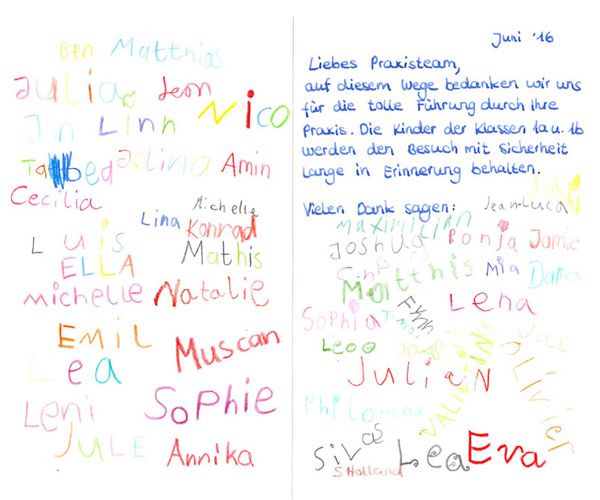 Ben Matthias
Julia Leon
Nico
Linn
Jolina Amin
Cecilia
Michelle
Lina Konrad
Luis
Mathis
ELLA
michelle Natalie
EMiL
Muscan
Lea
Leni SoPHie
JULE Annika
Juni '16
Liebes Praxisteam,
auf diesem Wege bedanken wir uns
für die tolle Führung durch Ihre
Praxis. Die Kinder der Klassen 1a u. 1b
werden den Besuch mit Sicherheit
lange in Erinnerung behalten.
Vielen Dank sagen: Jean-Luca
maximilian
JoShua Ronja Jamie
Matthis Mia Dana
Lena
Sophia Fynn
Leoo
JuliaN
VALENTIN
Olivier
Philomena
SiLas
S.Holland Lea Eva